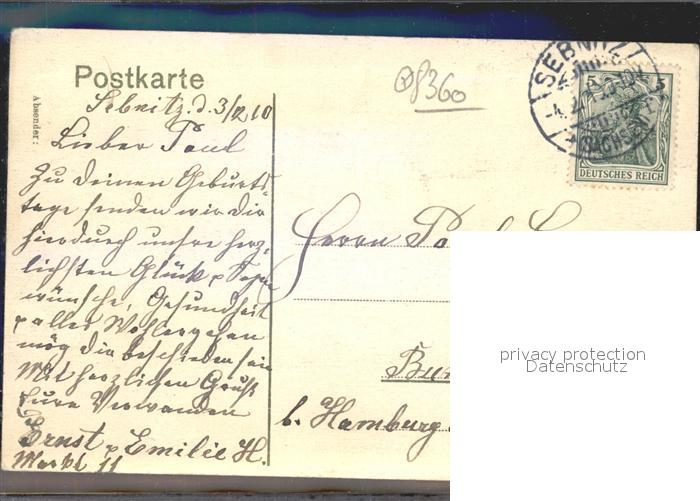 Postkarte
Absender:
Sebnitz. d. 3/12 10
Lieber Paul
Zu deinen Geburts-
tage senden wir dir
hierdurch unsre herz-
lichsten Glück u Segen
wünsche, Gesundheit
u alles Wohlergehen
mög dir beschieden sein
Mit herzlichen Gruß
Eure Verwanden
Ernst u Emilie H.
Markt 11
8360
SEBNITZ
SACHSEN
5 5
DEUTSCHES REICH
Herrn
b. Hamburg
privacy protection
Datenschutz